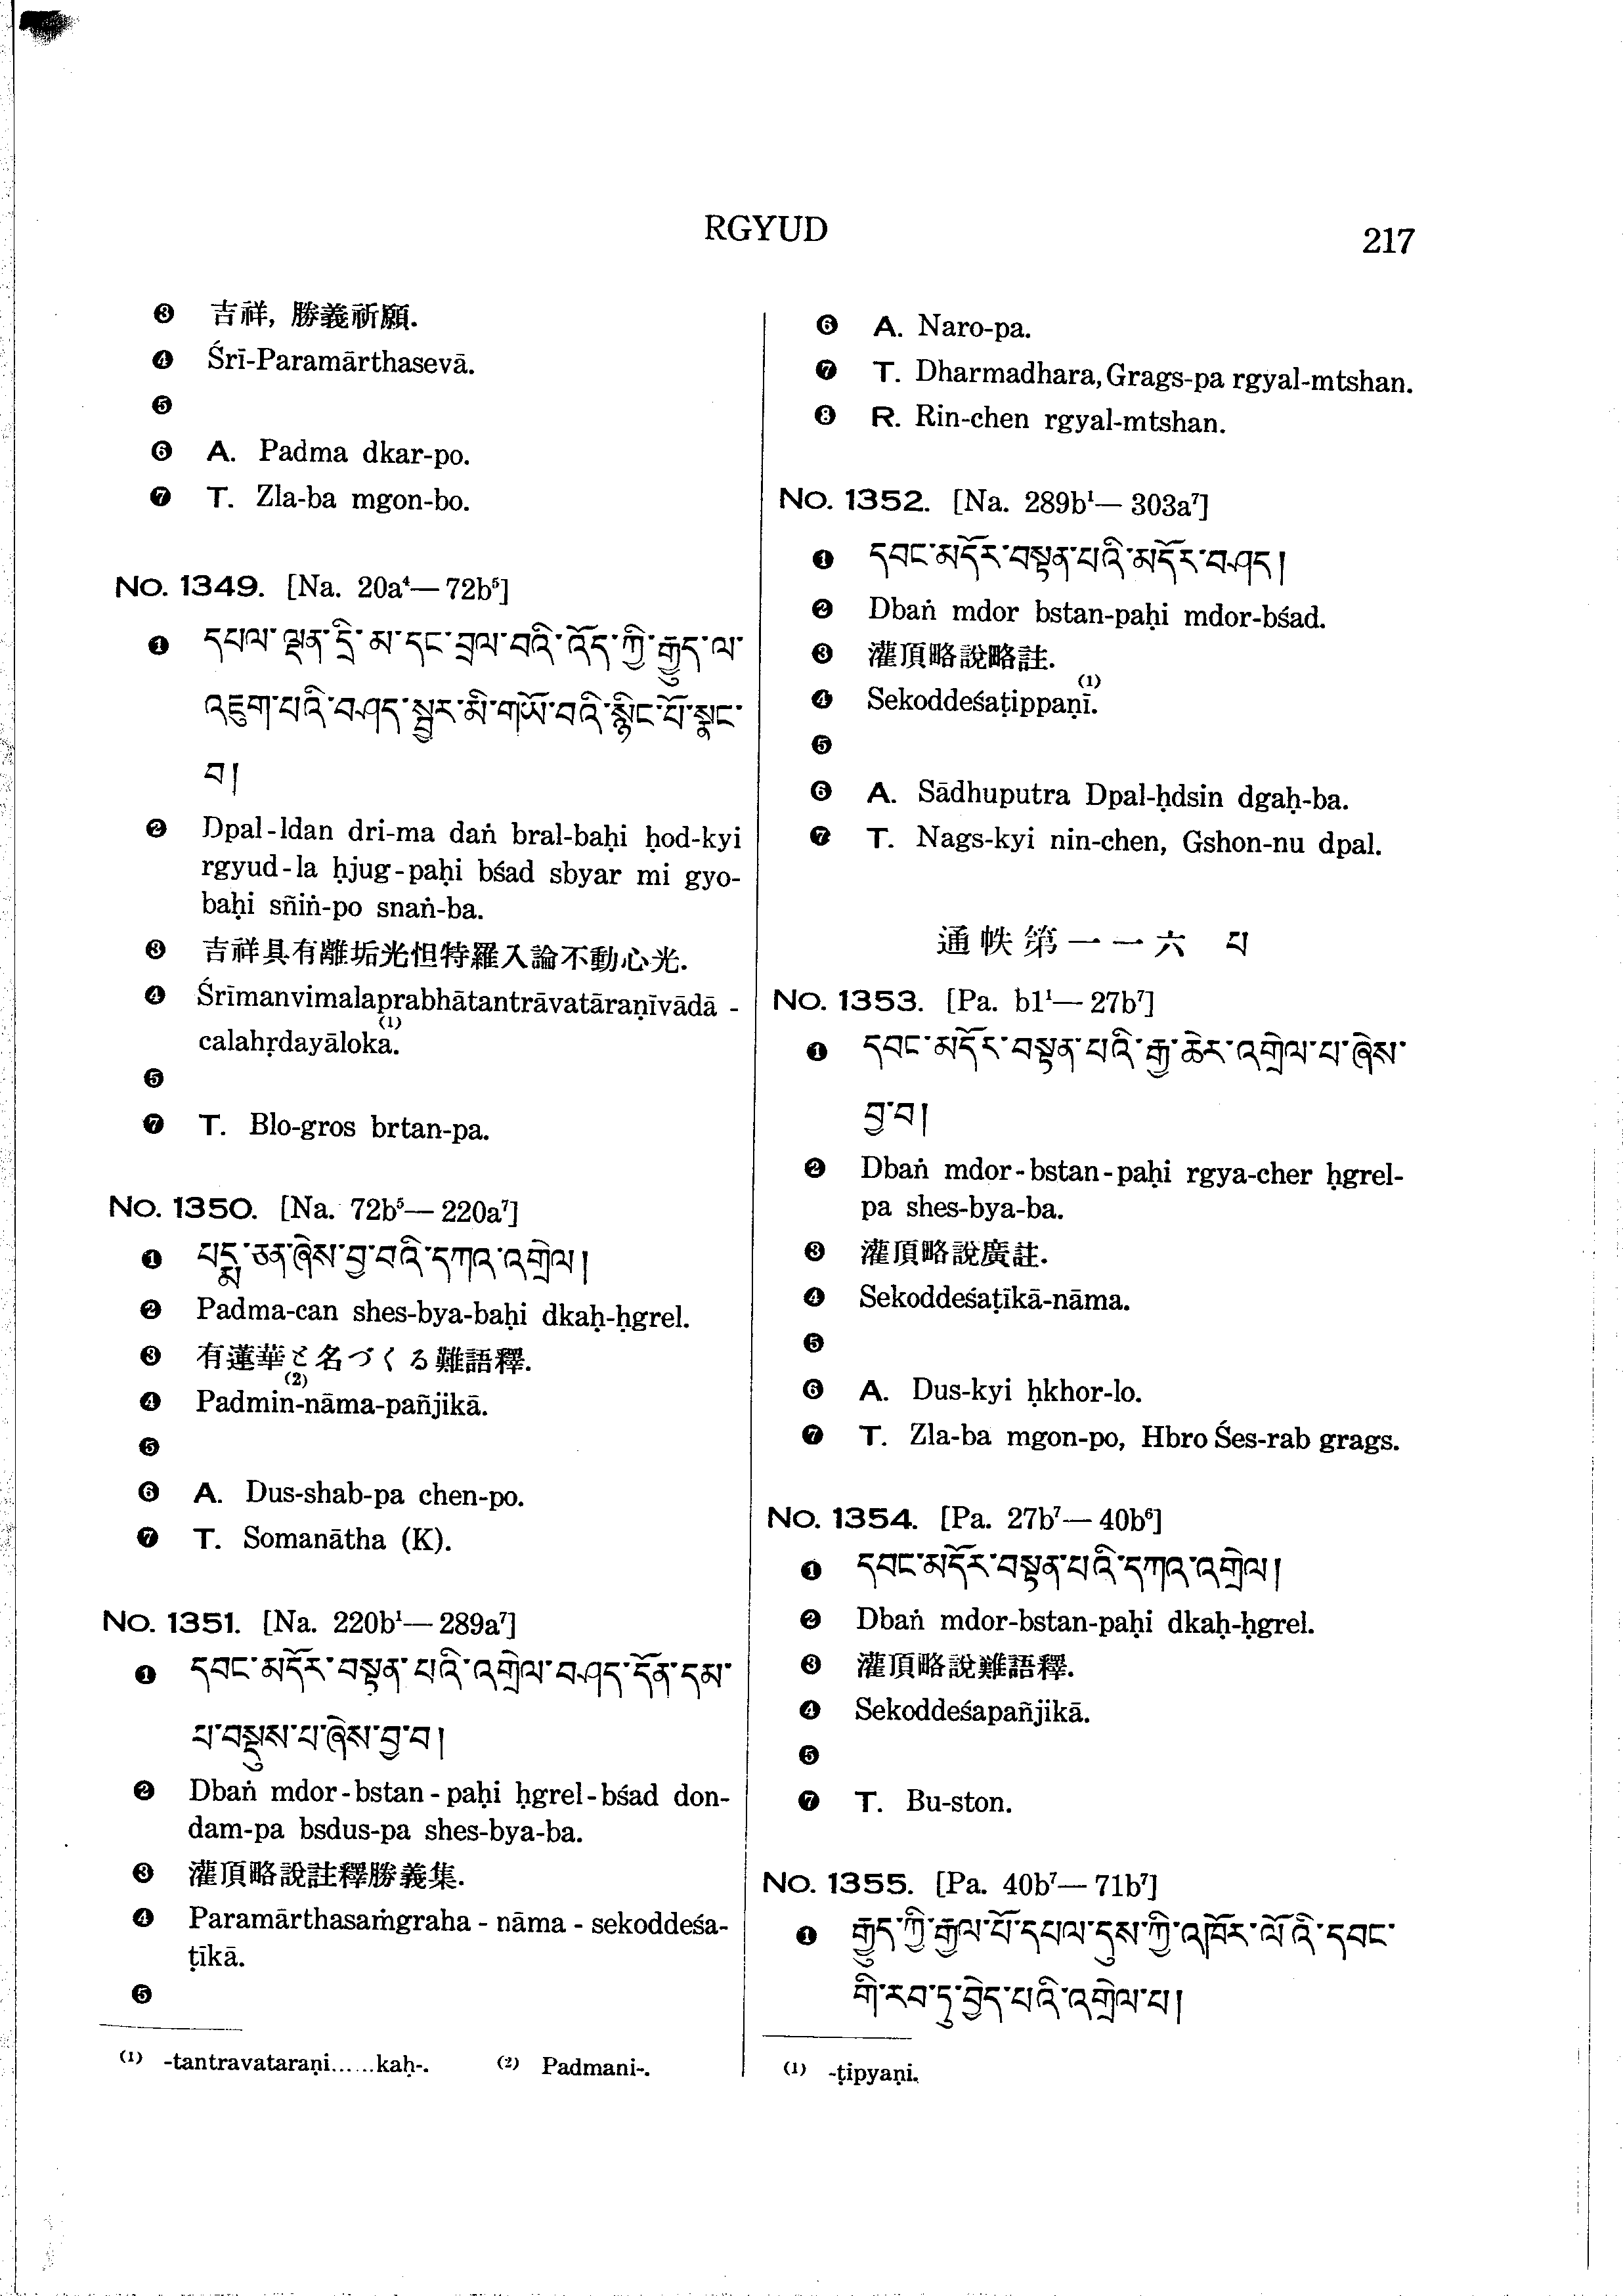 RGYUD
217
❸ 吉祥, 勝義祈願.
❹ Śrī-Paramārthasevā.
❺
❻ A. Padma dkar-po.
❼ T. Zla-ba mgon-bo.
No. 1349. [Na. 20a⁴— 72b⁵]
❶ དཔལ་ལྡན་དྲི་མ་དང་བྲལ་བའི་འོད་ཀྱི་རྒྱུད་ལ་
འཇུག་པའི་བཤད་སྦྱར་མི་གཡོ་བའི་སྙིང་པོ་སྣང་
བ།
❷ Dpal-ldan dri-ma daṅ bral-baḥi ḥod-kyi
rgyud-la ḥjug-paḥi bśad sbyar mi gyo-
baḥi sñiṅ-po snaṅ-ba.
❸ 吉祥具有離垢光怛特羅入論不動心光.
❹ Śrīmanvimalaprabhātantrāvatāraṇīvādā -
calahṛdayāloka.⁽¹⁾
❺
❼ T. Blo-gros brtan-pa.
No. 1350. [Na. 72b⁵— 220a⁷]
❶ པདྨ་ཅན་ཞེས་བྱ་བའི་དཀའ་འགྲེལ།
❷ Padma-can shes-bya-baḥi dkaḥ-ḥgrel.
❸ 有蓮華と名づくる難語釋.
❹ Padmin-⁽²⁾nāma-pañjikā.
❺
❻ A. Dus-shab-pa chen-po.
❼ T. Somanātha (K).
No. 1351. [Na. 220b¹— 289a⁷]
❶ དབང་མདོར་བསྟན་པའི་འགྲེལ་བཤད་དོན་དམ་
པ་བསྡུས་པ་ཞེས་བྱ་བ།
❷ Dbaṅ mdor-bstan-paḥi ḥgrel-bśad don-
dam-pa bsdus-pa shes-bya-ba.
❸ 灌頂略說註釋勝義集.
❹ Paramārthasaṁgraha - nāma - sekoddeśa-
ṭīkā.
❺
⁽¹⁾ -tantravataraṇi......kaḥ-. ⁽²⁾ Padmani-.
❻ A. Naro-pa.
❼ T. Dharmadhara, Grags-pa rgyal-mtshan.
❽ R. Rin-chen rgyal-mtshan.
No. 1352. [Na. 289b¹— 303a⁷]
❶ དབང་མདོར་བསྟན་པའི་མདོར་བཤད།
❷ Dbaṅ mdor bstan-paḥi mdor-bśad.
❸ 灌頂略說略註.
❹ Sekoddeśaṭippaṇī.⁽¹⁾
❺
❻ A. Sādhuputra Dpal-ḥdsin dgaḥ-ba.
❼ T. Nags-kyi nin-chen, Gshon-nu dpal.
通帙第一一六 པ
No. 1353. [Pa. b1¹— 27b⁷]
❶ དབང་མདོར་བསྟན་པའི་རྒྱ་ཆེར་འགྲེལ་པ་ཞེས་
བྱ་བ།
❷ Dbaṅ mdor-bstan-paḥi rgya-cher ḥgrel-
pa shes-bya-ba.
❸ 灌頂略說廣註.
❹ Sekoddeśaṭīkā-nāma.
❺
❻ A. Dus-kyi ḥkhor-lo.
❼ T. Zla-ba mgon-po, Hbro Śes-rab grags.
No. 1354. [Pa. 27b⁷— 40b⁶]
❶ དབང་མདོར་བསྟན་པའི་དཀའ་འགྲེལ།
❷ Dbaṅ mdor-bstan-paḥi dkaḥ-ḥgrel.
❸ 灌頂略說難語釋.
❹ Sekoddeśapañjikā.
❺
❼ T. Bu-ston.
No. 1355. [Pa. 40b⁷— 71b⁷]
❶ རྒྱུད་ཀྱི་རྒྱལ་པོ་དཔལ་དུས་ཀྱི་འཁོར་ལོའི་དབང་
གི་རབ་ཏུ་བྱེད་པའི་འགྲེལ་པ།
⁽¹⁾ -ṭipyaṇi.